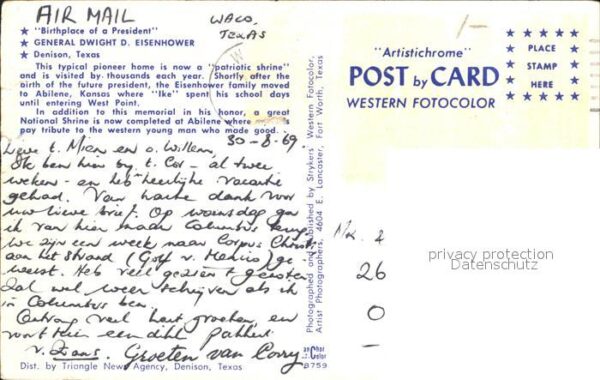 AIR MAIL
WACO,
TEXAS
★ "Birthplace of a President"
★ GENERAL DWIGHT D. EISENHOWER
★ Denison, Texas
This typical pioneer home is now a "patriotic shrine"
and is visited by thousands each year. Shortly after the
birth of the future president, the Eisenhower family moved
to Abilene, Kansas where "Ike" spent his school days
until entering West Point.
In addition to this memorial in his honor, a great
National Shrine is now completed at Abilene where
pay tribute to the western young man who made good.
30-8-69.
Lieve t. Mien en o. Willem,
Ik ben hier by t. Cor - al twee
weken - en heb heerlijke vacantie
gehad. Van harte dank voor
uw lieve brief. Op woensdag ga
ik van hier naar Columbus terug
we zijn een week naar Corpus Christi
aan het strand (Golf v. Mexico) ge-
weest. Heb veel gezien & genoten
Zal wel weer schrijven als ik
in Columbus ben.
Ontvang veel hart. groeten, en
voor een dikke pakkerd
v.
Groeten van Corry
Dist. by Triangle News Agency, Denison, Texas
Photographed and published by Strykers' Western Fotocolor,
Artist Photographers, 4604 E. Lancaster, Fort Worth, Texas
8759
"Artistichrome"
POST by CARD
WESTERN FOTOCOLOR
PLACE
STAMP
HERE
1/-
26
0
-
privacy protection
Datenschutz